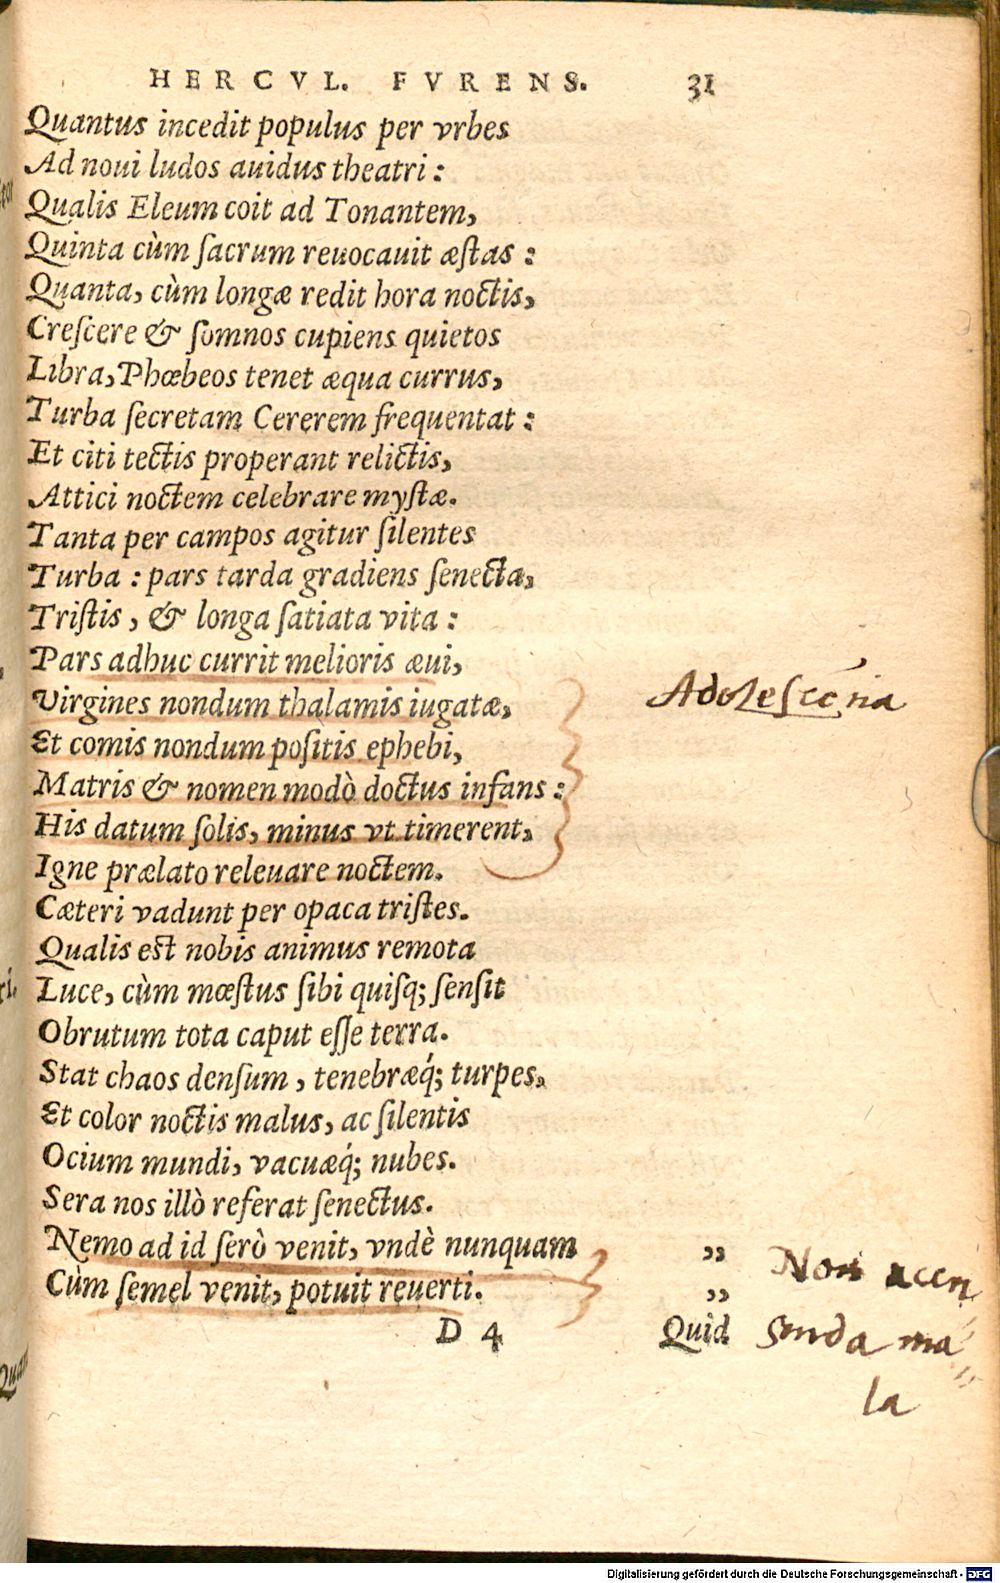 HERCVL. FVRENS. 31
Quantus incedit populus per vrbes
Ad noui ludos auidus theatri:
Qualis Eleum coit ad Tonantem,
Quinta cùm ſacrum reuocauit æſtas:
Quanta, cùm longæ redit hora noctis,
Creſcere & ſomnos cupiens quietos
Libra, Phœbeos tenet æqua currus,
Turba ſecretam Cererem frequentat:
Et citi tectis properant relictis,
Attici noctem celebrare myſtæ.
Tanta per campos agitur ſilentes
Turba: pars tarda gradiens ſenecta,
Triſtis, & longa ſatiata vita:
Pars adhuc currit melioris æui,
Virgines nondum thalamis iugatæ,
Adolescẽtia
Et comis nondum poſitis ephebi,
Matris & nomen modò doctus infans:
His datum ſolis, minus vt timerent,
Igne prælato releuare noctem.
Cæteri vadunt per opaca triſtes.
Qualis est nobis animus remota
Luce, cùm mœſtus ſibi quiſq; ſenſit
Obrutum tota caput eſſe terra.
Stat chaos denſum, tenebræq́; turpes,
Et color noctis malus, ac ſilentis
Ocium mundi, vacuæq́; nubes.
Sera nos illò referat ſenectus.
Nemo ad id ſerò venit, vndè nunquam ,,
Cùm ſemel venit, potuit reuerti. ,,
Non accen
D 4 Quid
senda ma
la
Quan
Digitalisierung gefördert durch die Deutsche Forschungsgemeinschaft - DFG